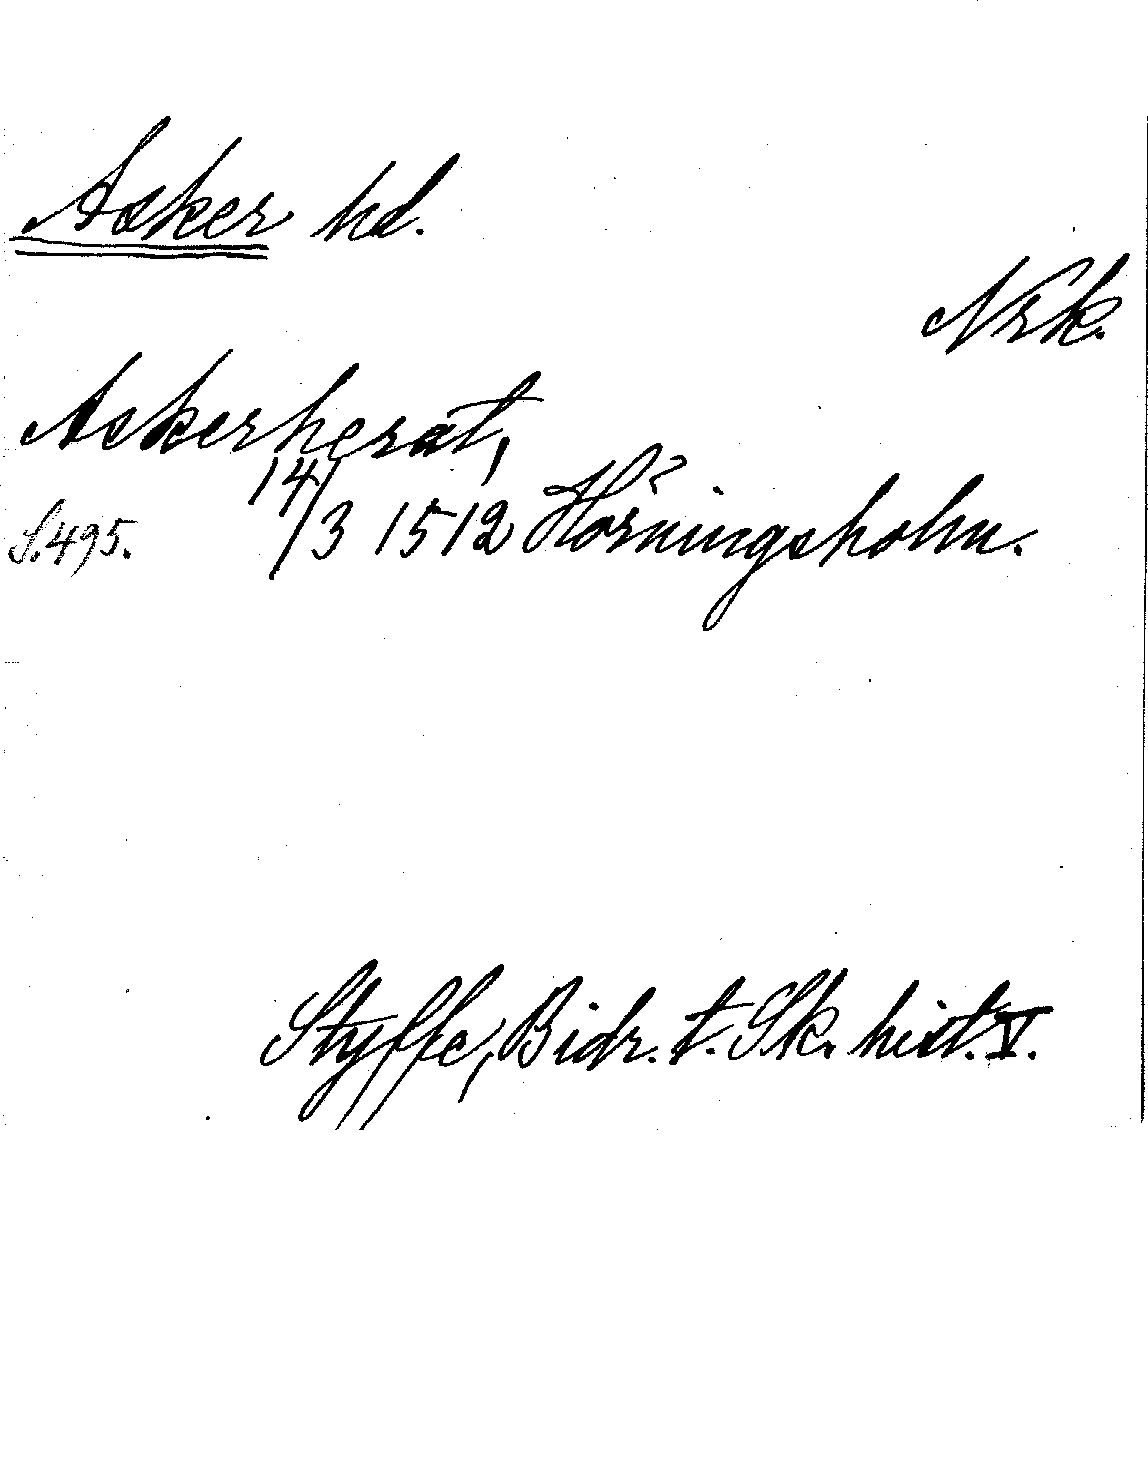 Asker hd.
Nrk.
Askerherat,
S.495. 14/3 1512 Hörningsholm.
Styffe, Bidr. t. Sk. hist. V.